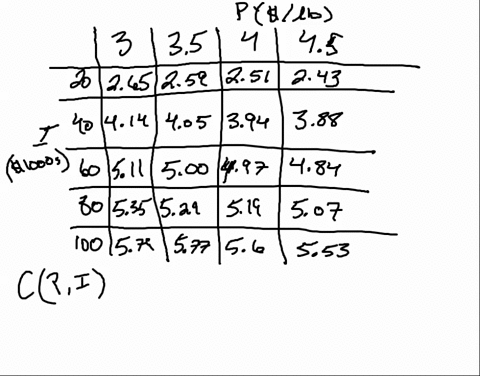 P($/lb)
3 3.5 4 4.5
20 2.65 2.59 2.51 2.43
40 4.14 4.05 3.94 3.88
I
($1000s)
60 5.11 5.00 4.97 4.84
80 5.35 5.29 5.19 5.07
100 5.79 5.77 5.6 5.53
C(P,I)